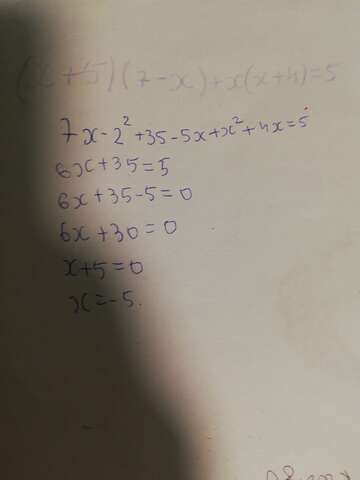 (x+5)(7-x)+x(x+4)=5
7x-2²+35-5x+x²+4x=5
6x+35=5
6x+35-5=0
6x+30=0
x+5=0
x=-5.